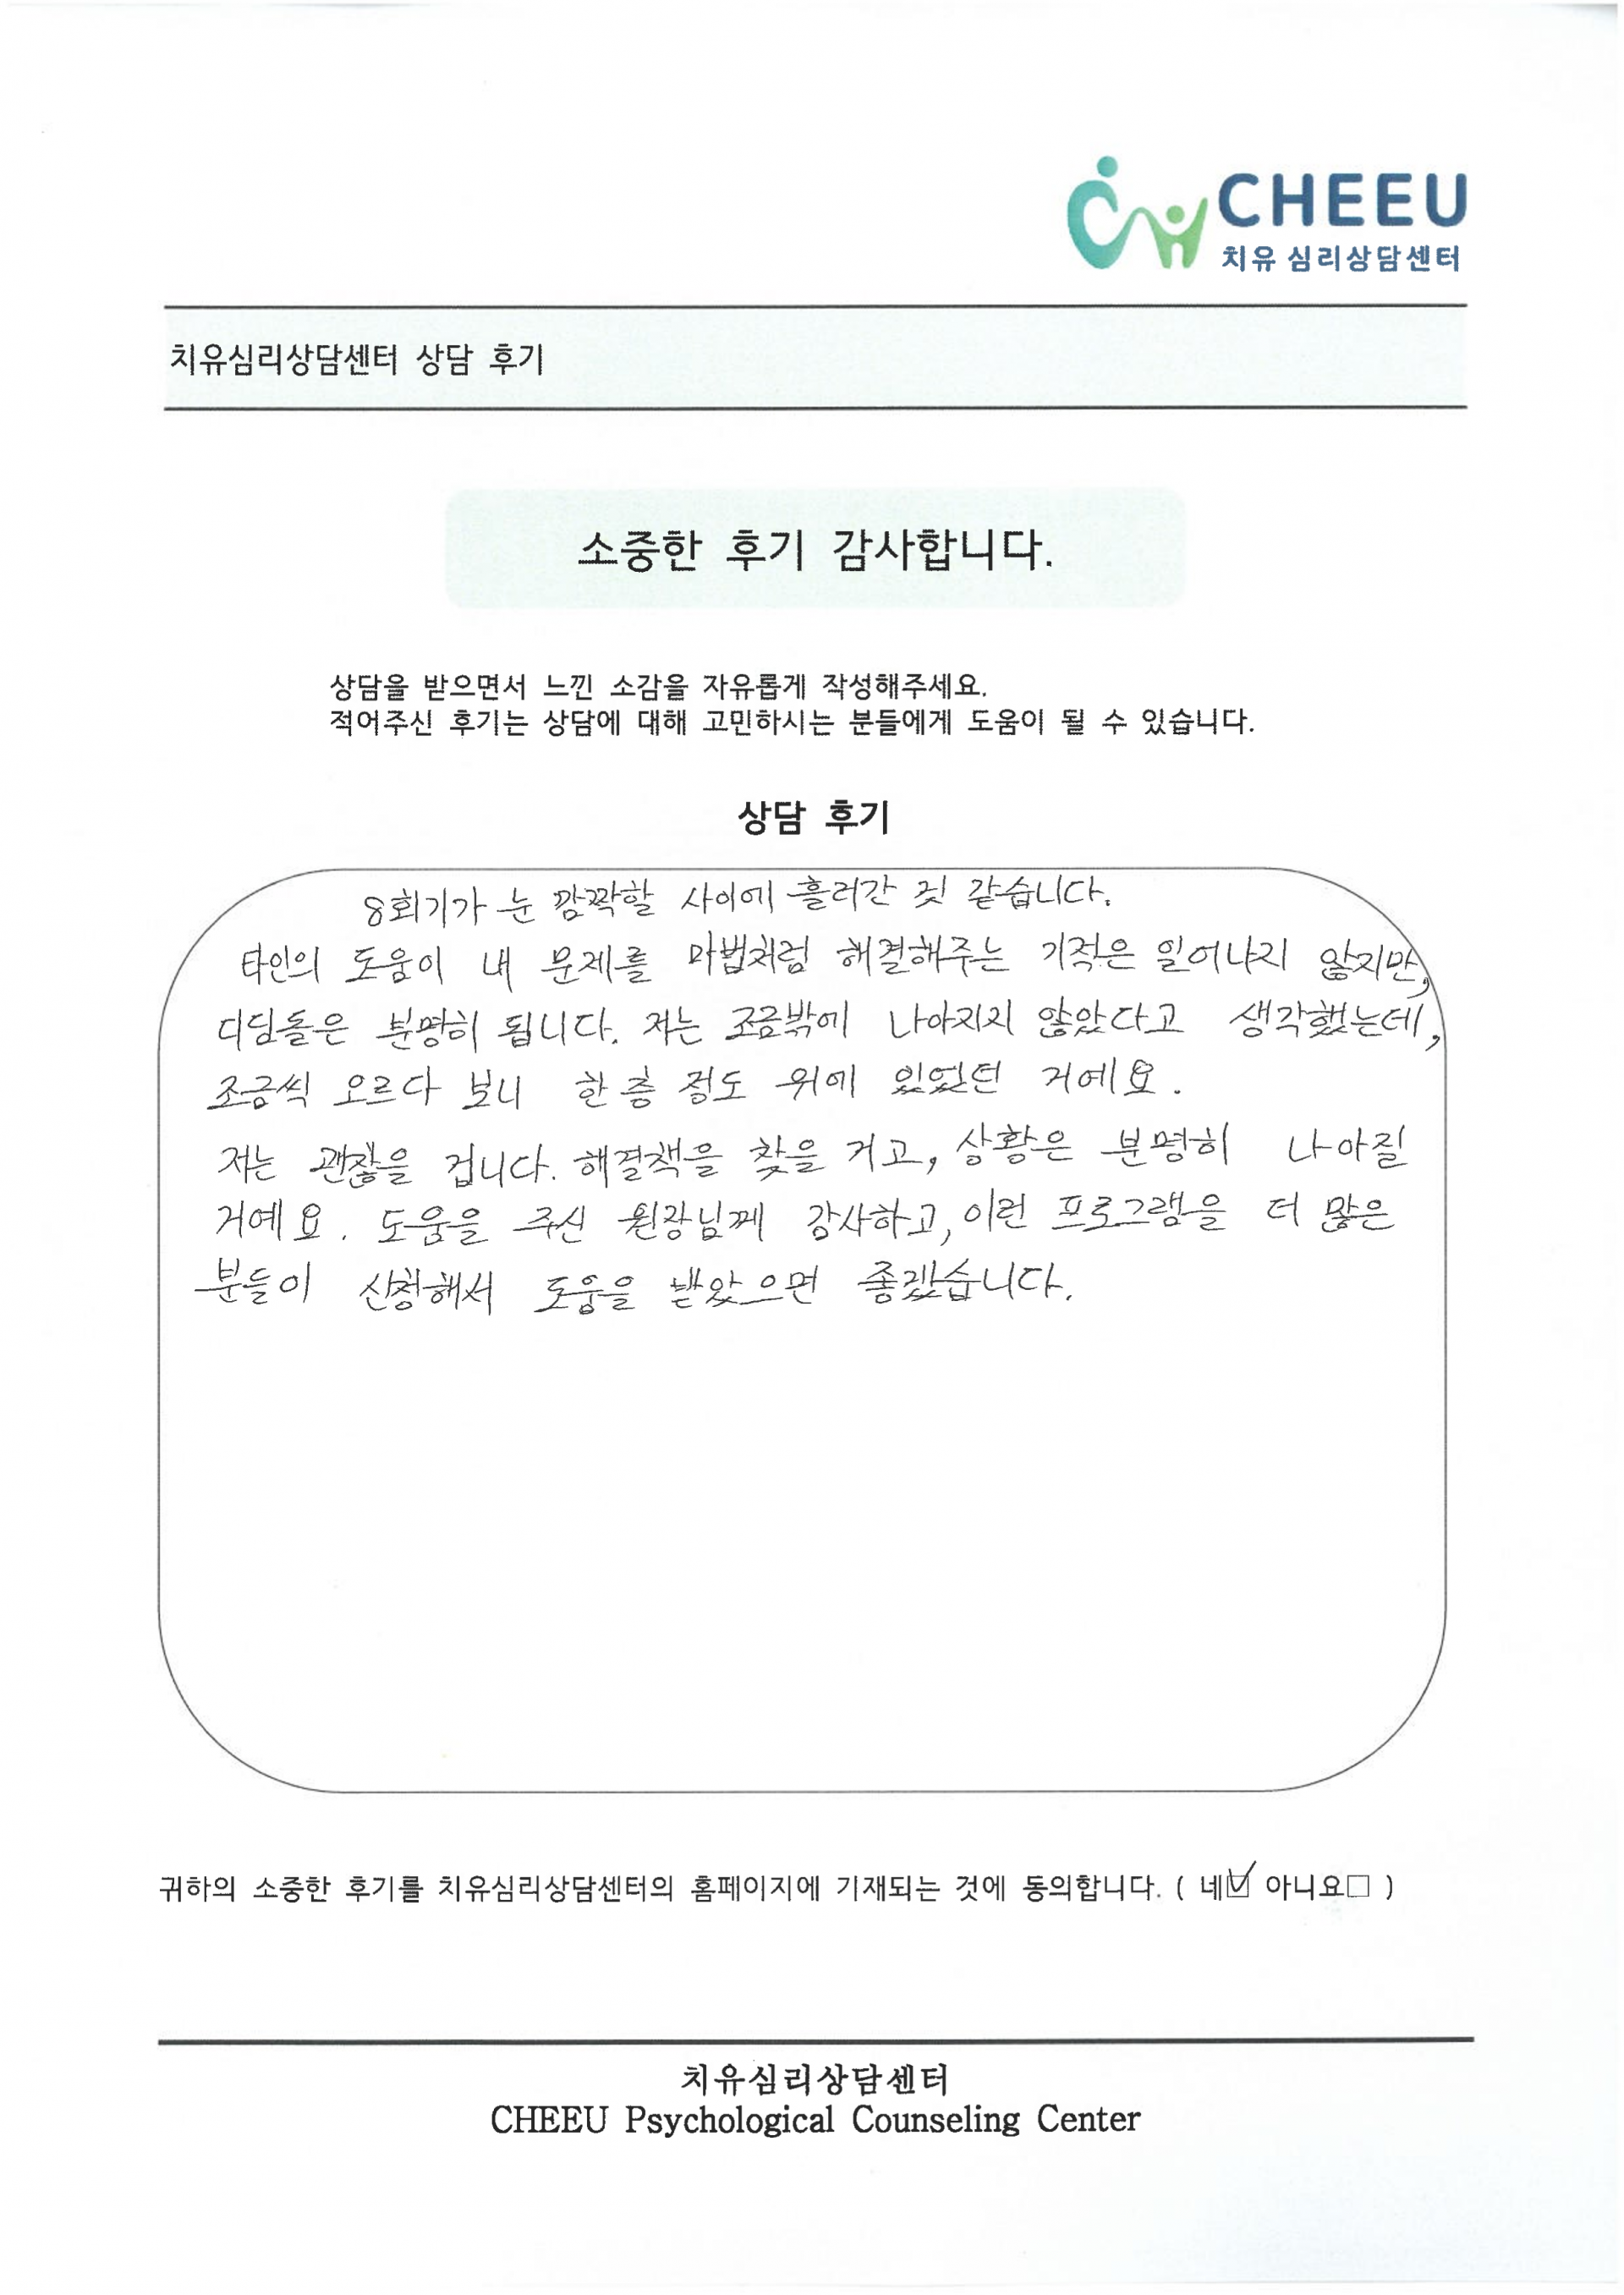 CHEEU
치유 심리상담센터
치유심리상담센터 상담 후기
소중한 후기 감사합니다.
상담을 받으면서 느낀 소감을 자유롭게 작성해주세요.
적어주신 후기는 상담에 대해 고민하시는 분들에게 도움이 될 수 있습니다.
상담 후기
8회기가 눈 깜짝할 사이에 흘러간 것 같습니다.
타인의 도움이 내 문제를 마법처럼 해결해주는 기적은 일어나지 않지만,
디딤돌은 분명히 됩니다. 저는 조금밖에 나아지지 않았다고 생각했는데,
조금씩 오르다 보니 한 층 정도 위에 있었던 거에요.
저는 괜찮을 겁니다. 해결책을 찾을 거고, 상황은 분명히 나아질
거예요. 도움을 주신 원장님께 감사하고, 이런 프로그램을 더 많은
분들이 신청해서 도움을 받았으면 좋겠습니다.
귀하의 소중한 후기를 치유심리상담센터의 홈페이지에 기재되는 것에 동의합니다. ( 네☑ 아니요□ )
치유심리상담센터
CHEEU Psychological Counseling Center